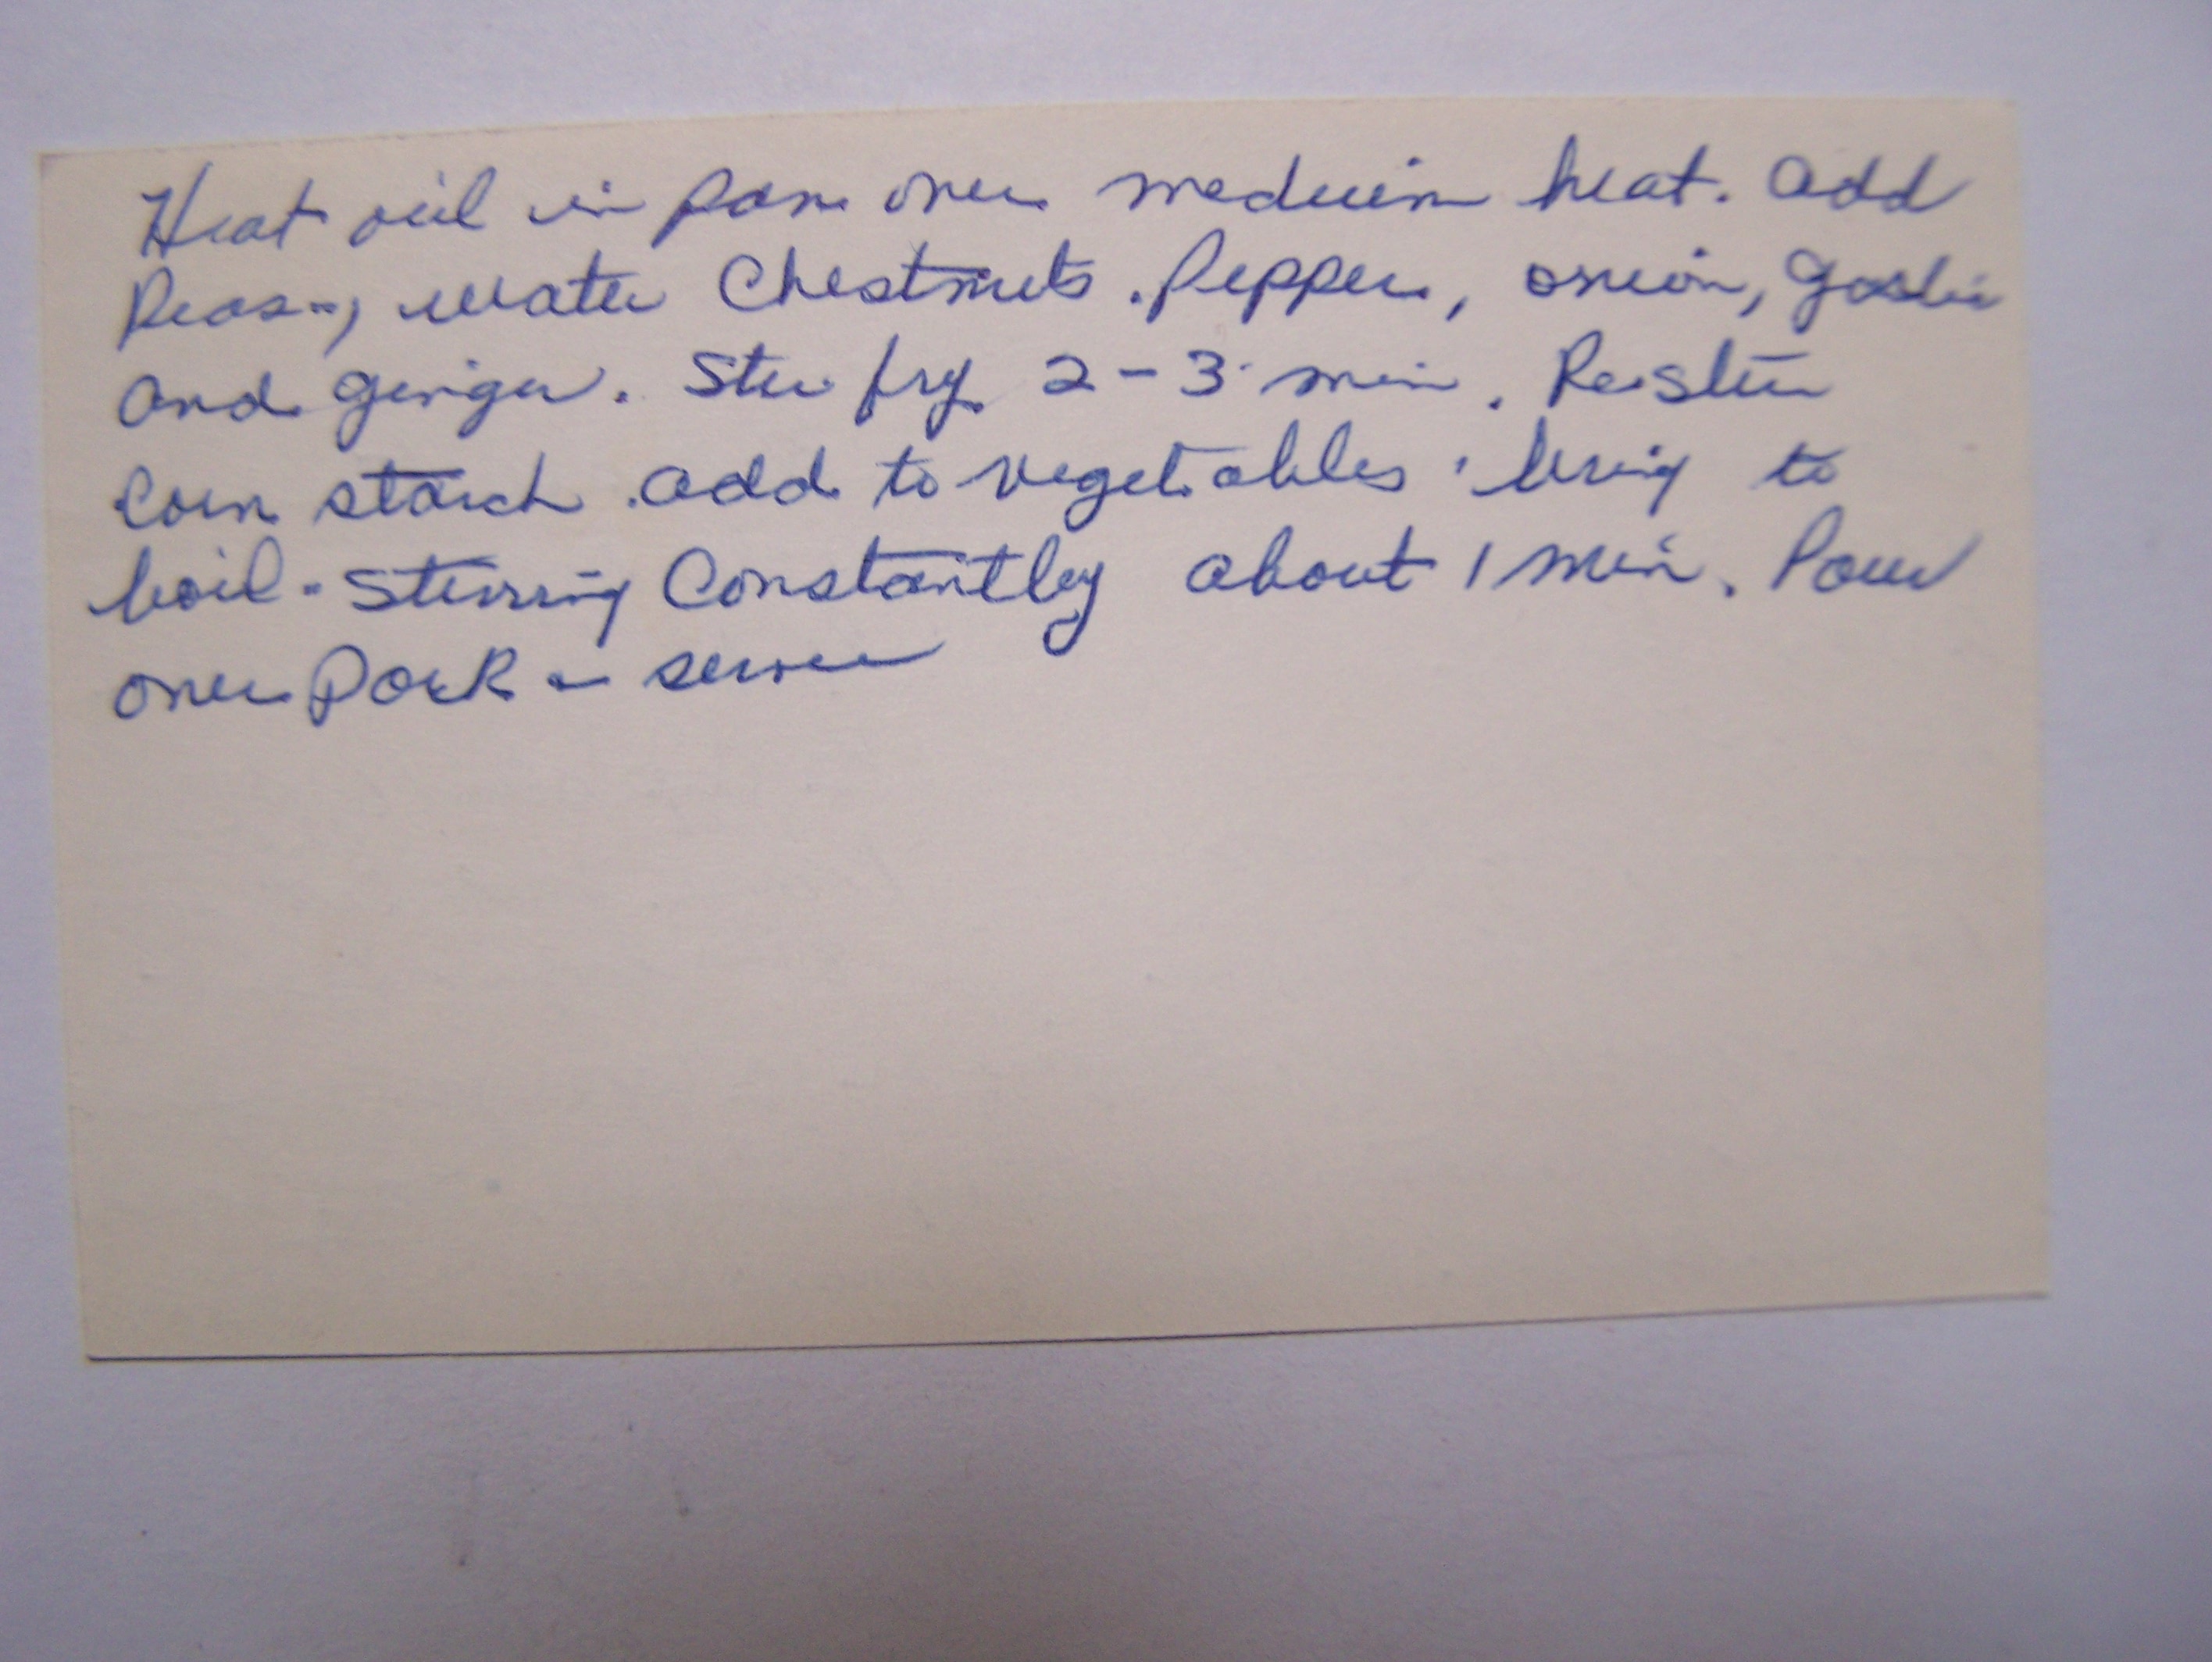 Heat oil in pan over medium heat. Add
Peas-, water Chestnuts. Pepper, onion, garlic
and ginger. Stir fry 2-3 min. Restir
corn starch. add to vegetables. bring to
boil - stirring Constantly about 1 min. Pour
over Pork - serve